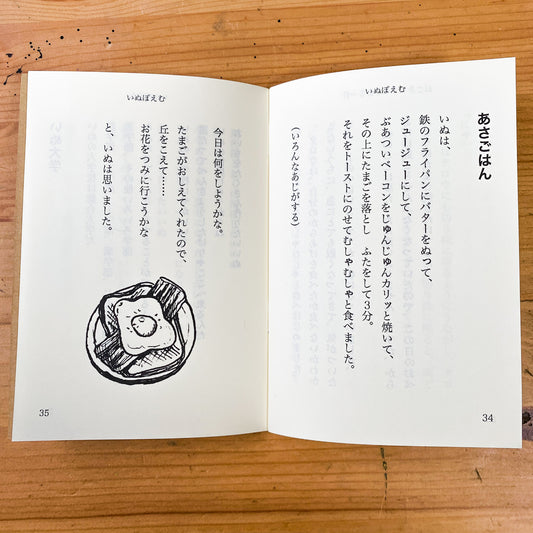 いぬぽえむ
あさごはん
いぬは、
鉄のフライパンにバターをぬって、
ジュージューにして、
ぶあついベーコンをじゅんじゅんカリッと焼いて、
その上にたまごを落とし　ふたをして3分。
それをトーストにのせてむしゃむしゃと食べました。
（いろんなあじがする）
34
いぬぽえむ
今日は何をしようかな。
たまごがおしえてくれたので、
丘をこえて……
お花をつみに行こうかな
と、いぬは思いました。
35